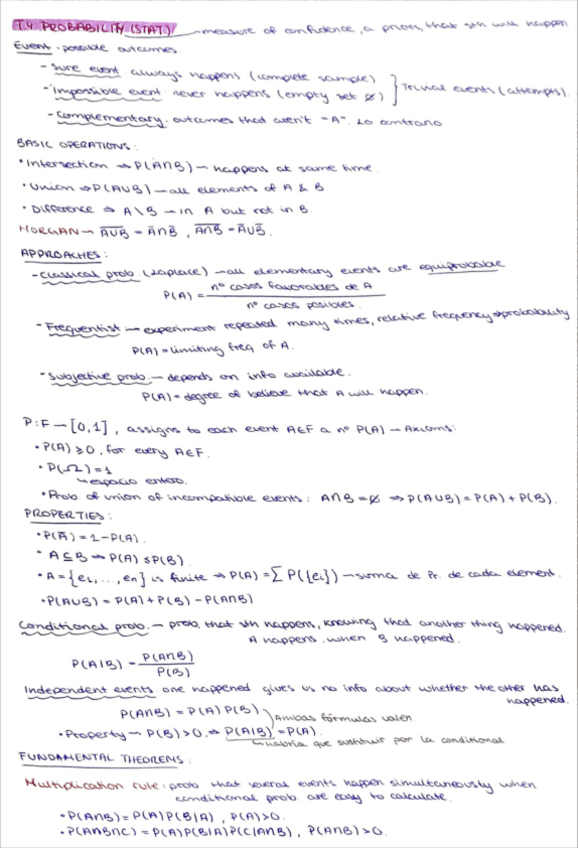 T.4. PROBABILITY (STAT) — measure of confidence, a priori, that sth will happen
Event: possible outcomes
- Sure event always happens (complete sample)
- Impossible event never happens (empty set ∅) } Trivial events (attempts).
- Complementary: outcomes that aren't "A". Lo contrario
BASIC OPERATIONS:
• Intersection ⇒ P(A∩B) — happens at same time.
• Union ⇒ P(A∪B) — all elements of A & B
• Difference ⇒ A \ B — in A but not in B.
MORGAN — A̅∪̅B̅ = A̅∩B̅, A̅∩̅B̅ = A̅∪B̅.
APPROACHES:
- Classical prob (Laplace) — all elementary events are equiprobable
P(A) = nº casos favorables de A / nº casos posibles.
- Frequentist — experiment repeated many times, relative frequency ⇒ probability
P(A) = limiting freq of A.
- Subjective prob. — depends on info available.
P(A) = degree of believe that A will happen.
P: F — [0,1], assigns to each event A∈F a nº P(A) — Axioms:
• P(A) ≥ 0, for every A∈F.
• P(Ω) = 1
↳ espacio entero.
• Prob of union of incompatible events: A∩B = ∅ ⇒ P(A∪B) = P(A) + P(B).
PROPERTIES:
• P(A̅) = 1 - P(A).
• A ⊆ B ⇒ P(A) ≤ P(B).
• A = {e₁, ..., en} is finite ⇒ P(A) = ∑ P({ei}) — suma de Pr. de cada element.
• P(A∪B) = P(A) + P(B) - P(A∩B)
Conditional prob. — prob. that sth happens, knowing that another thing happened.
A happens when B happened.
P(A|B) = P(A∩B) / P(B)
Independent events one happened gives us no info about whether the other has happened.
P(A∩B) = P(A) P(B)
Ambas fórmulas valen
• Property — P(B) > 0, ⇒ P(A|B) = P(A).
↳ habría que sustituir por la conditional
FUNDAMENTAL THEOREMS:
Multiplication rule: prob that several events happen simultaneously when
conditional prob are easy to calculate.
• P(A∩B) = P(A) P(B|A), P(A) > 0.
• P(A∩B∩C) = P(A) P(B|A) P(C|A∩B), P(A∩B) > 0.